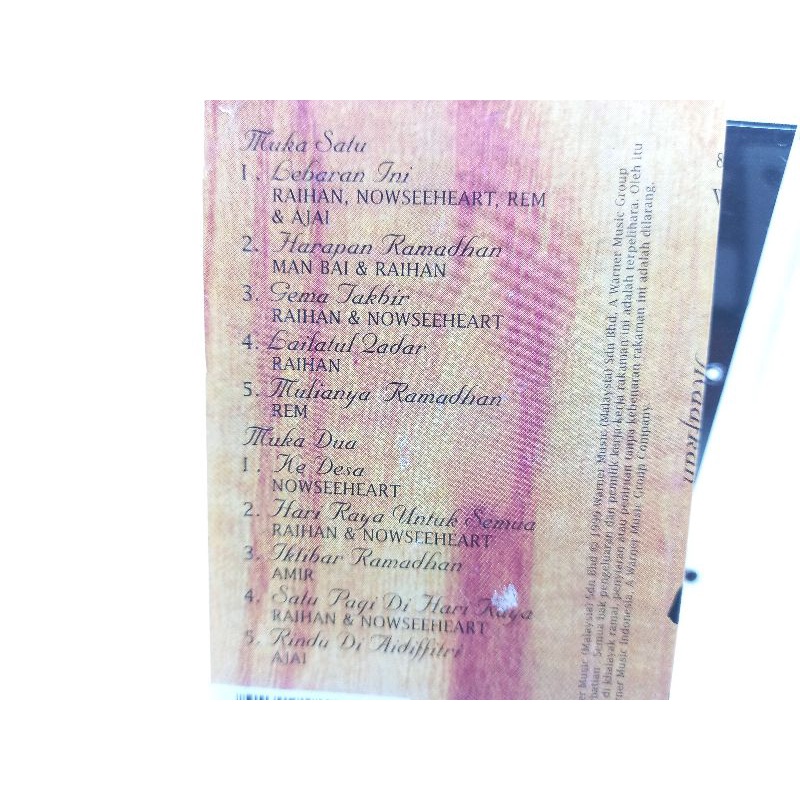 Muka Satu
1. Lebaran Ini
RAIHAN, NOWSEEHEART, REM
& AJAI
2. Harapan Ramadhan
MAN BAI & RAIHAN
3. Gema Takbir
RAIHAN & NOWSEEHEART
4. Lailatul Qadar
RAIHAN
5. Mulianya Ramadhan
REM
Muka Dua
1. Ke Desa
NOWSEEHEART
2. Hari Raya Untuk Semua
RAIHAN & NOWSEEHEART
3. Iktibar Ramadhan
AMIR
4. Satu Pagi Di Hari Raya
RAIHAN & NOWSEEHEART
5. Rindu Di Aidiffitri
AJAI
Music (Malaysia) Sdn Bhd © 1999 Warner Music (Malaysia) Sdn Bhd. A Warner Music Group
Semua hak pengeluaran dan pemilik kerja-kerja rakaman ini adalah terpelihara. Oleh itu
di khalayak ramai, penyiaran atau peniruan tanpa kebenaran rakaman ini adalah dilarang.
Music Indonesia, A Warner Music Group Company.